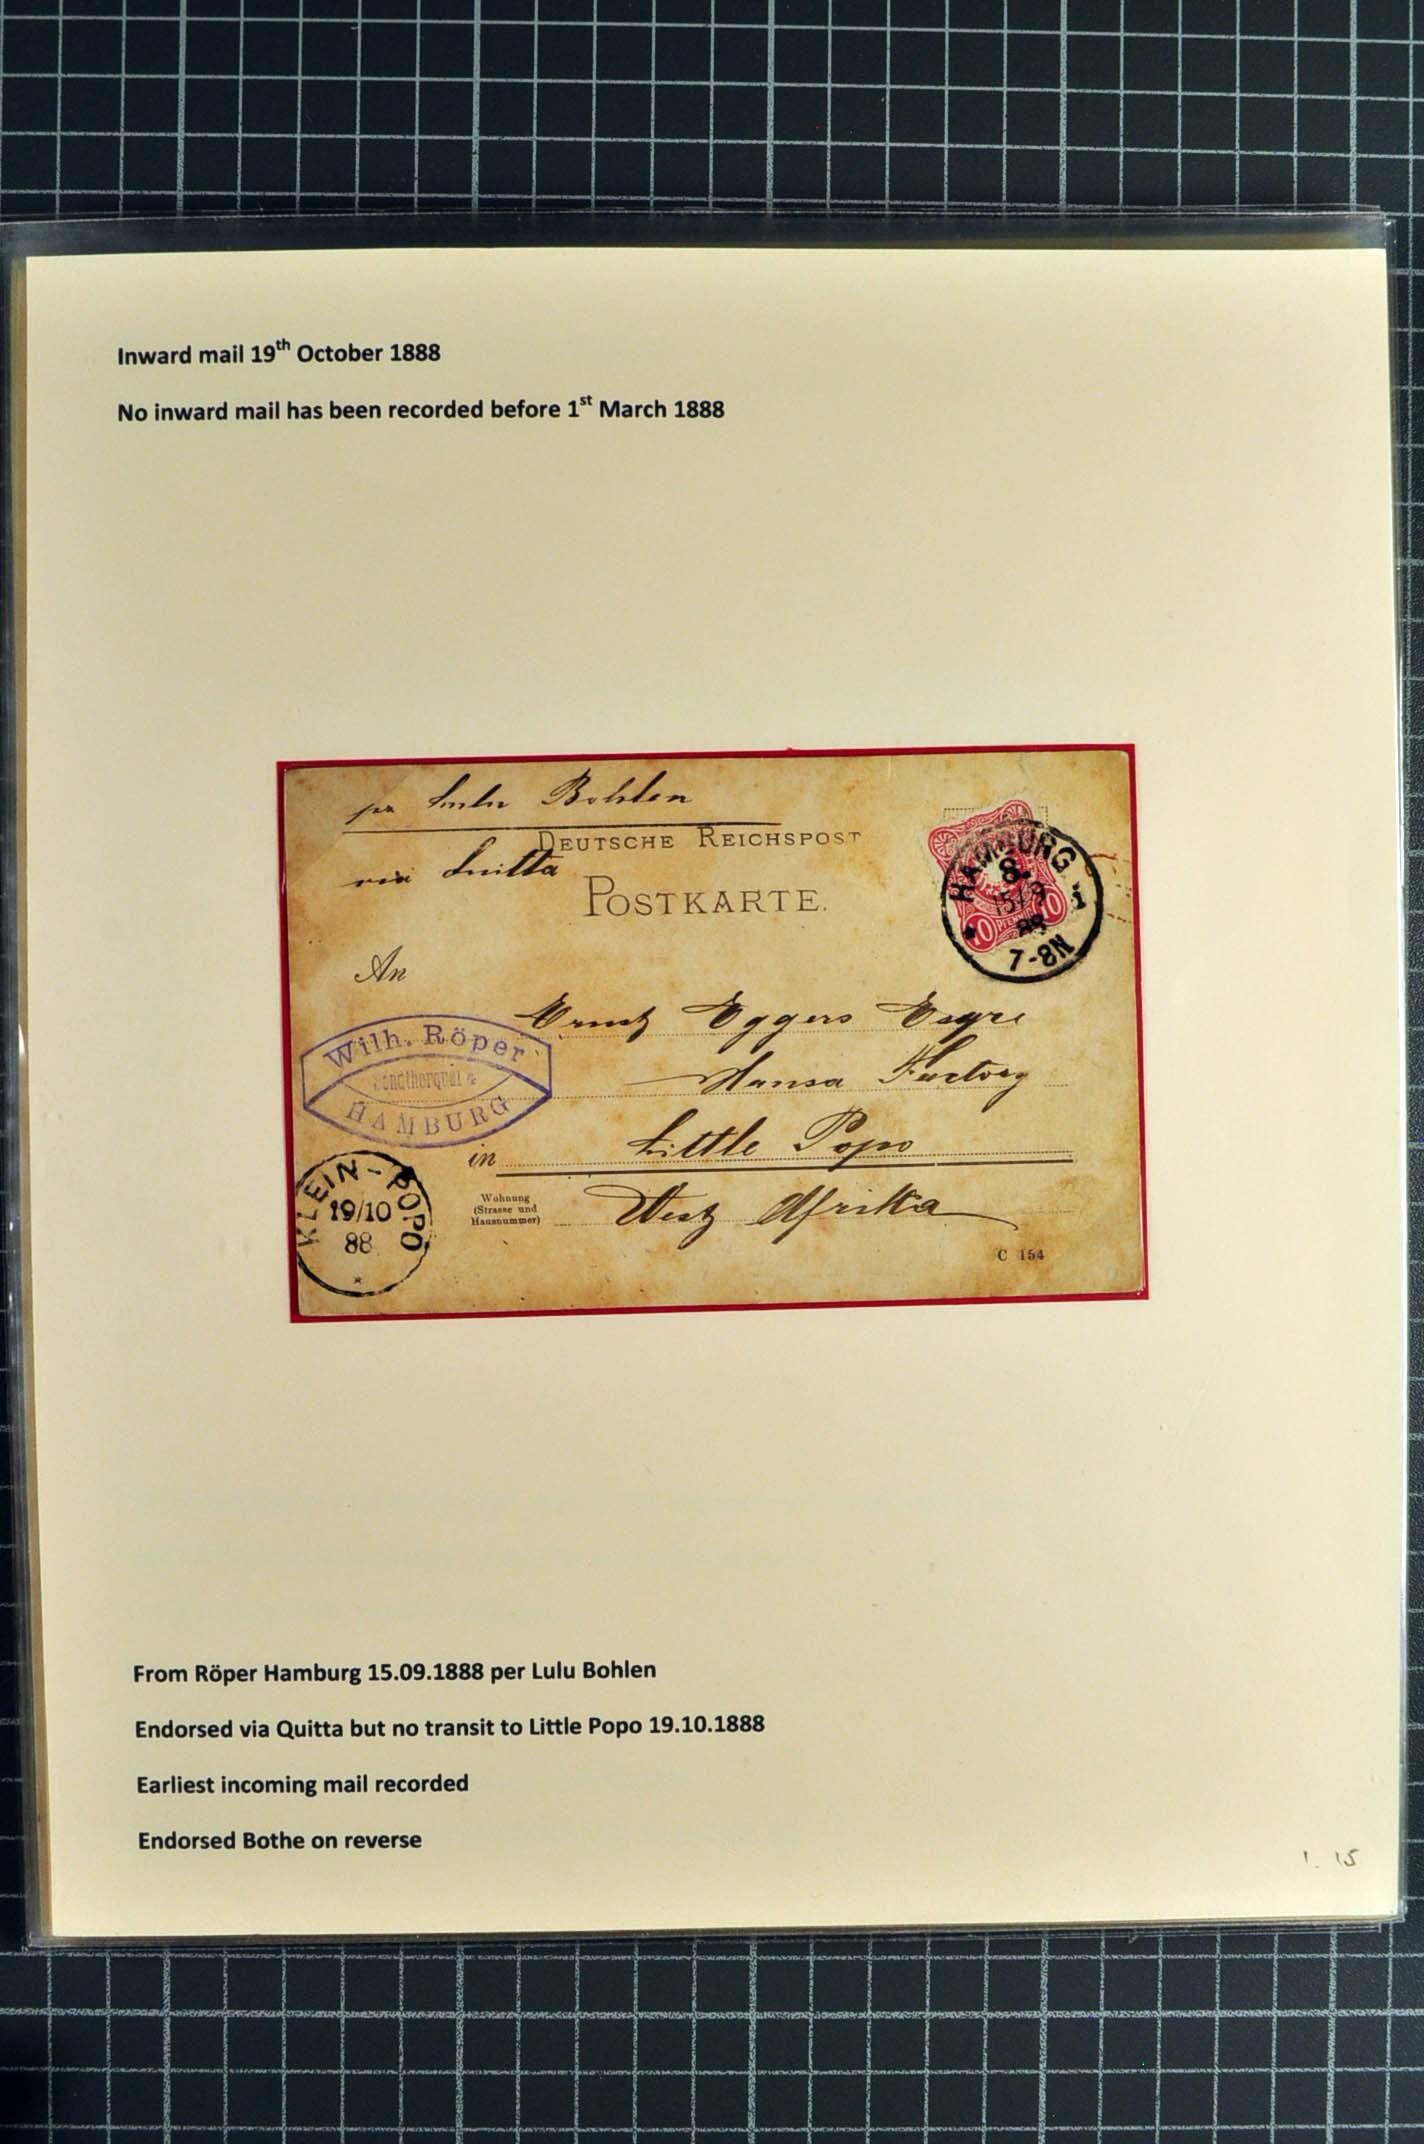 Inward mail 19th October 1888
No inward mail has been recorded before 1st March 1888
per Lulu Bohlen
DEUTSCHE REICHSPOST
via Quitta
POSTKARTE.
HAMBURG
8.
15/9
88
7-8N
* 1
10 PFENNIG 10
An
Ernst Eggers Esqre
Wilh. Röper
HAMBURG
Hansa Factory
in Little Popo
KLEIN-POPO
19/10
88
*
Wohnung
(Strasse und
Hausnummer)
West Afrika
C 154
From Röper Hamburg 15.09.1888 per Lulu Bohlen
Endorsed via Quitta but no transit to Little Popo 19.10.1888
Earliest incoming mail recorded
Endorsed Bothe on reverse
1.15